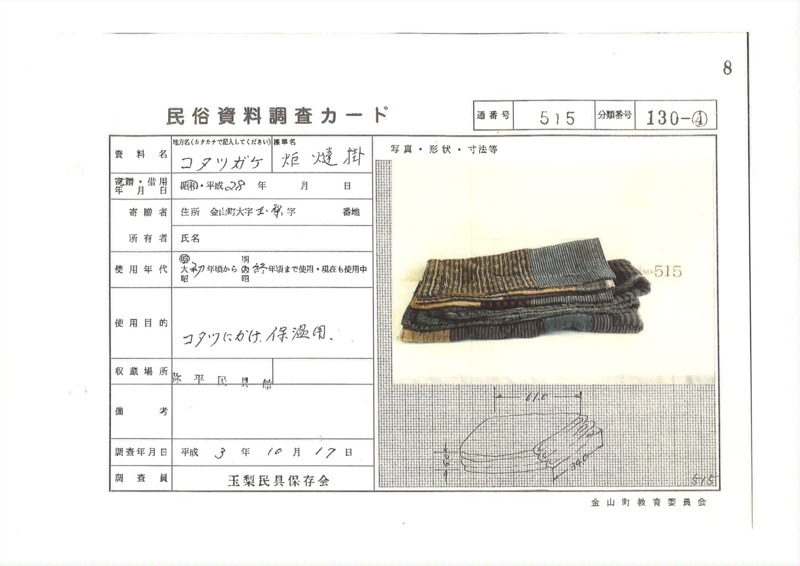 8
民俗資料調査カード
通番号 515 分類番号 130-④
資料名 地方名(カタカナで記入してください) コタツガケ 標準名 炬燵掛
写真・形状・寸法等
寄贈・借用年月日 昭和・平成 28 年 月 日
寄贈者 住所 金山町大字玉梨字 番地
所有者 氏名
使用年代 明大昭 初年頃から 明大昭 終年頃まで使用・現在も使用中
NO.515
使用目的 コタツにかけ、保温用、
収蔵場所 弥平民具館
備考
61.0
調査年月日 平成 3 年 10 月 17 日
39.0
調査員 玉梨民具保存会
515
金山町教育委員会